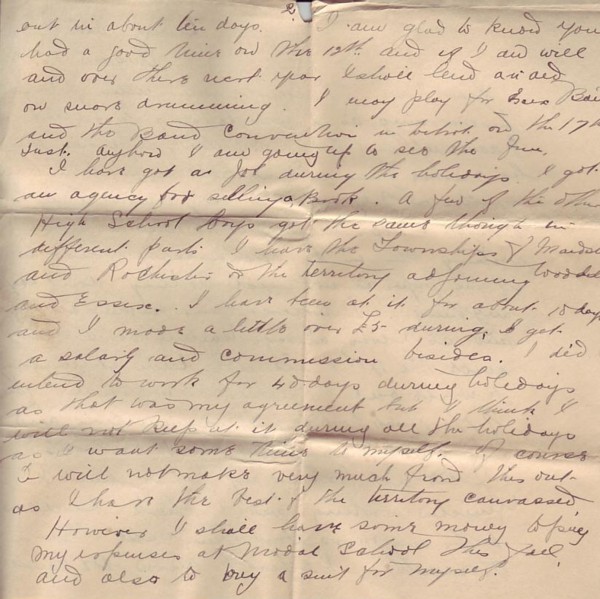 2.
out in about ten days. I am glad to know you
had a good time on the 12th and if I am well
and over there next year I shall lend an aid
on snare drumming. I may play for Band
and the Band Convention in Detroit on the 17th
inst. anyhow I am going up to see the fun.
I have got a Job during the holidays I got
an agency for selling a Book. A few of the other
High School boys got the same though in
different parts I have the Townships of Maidst
and Rochester or the territory adjoining Woodsl
and Essex. I have been at it for about 15 days
and I made a little over 25 during, I get
a salary and commission besides. I did
intend to work for 40 days during holidays
as that was my agreement but I think I
will not keep at it during all the holidays
as I want some time to myself. Of course
I will not make very much from this out
as I have the best of the territory canvassed.
However I shall have some money to pay
my expenses at Model School this fall,
and also to buy a suit for myself.